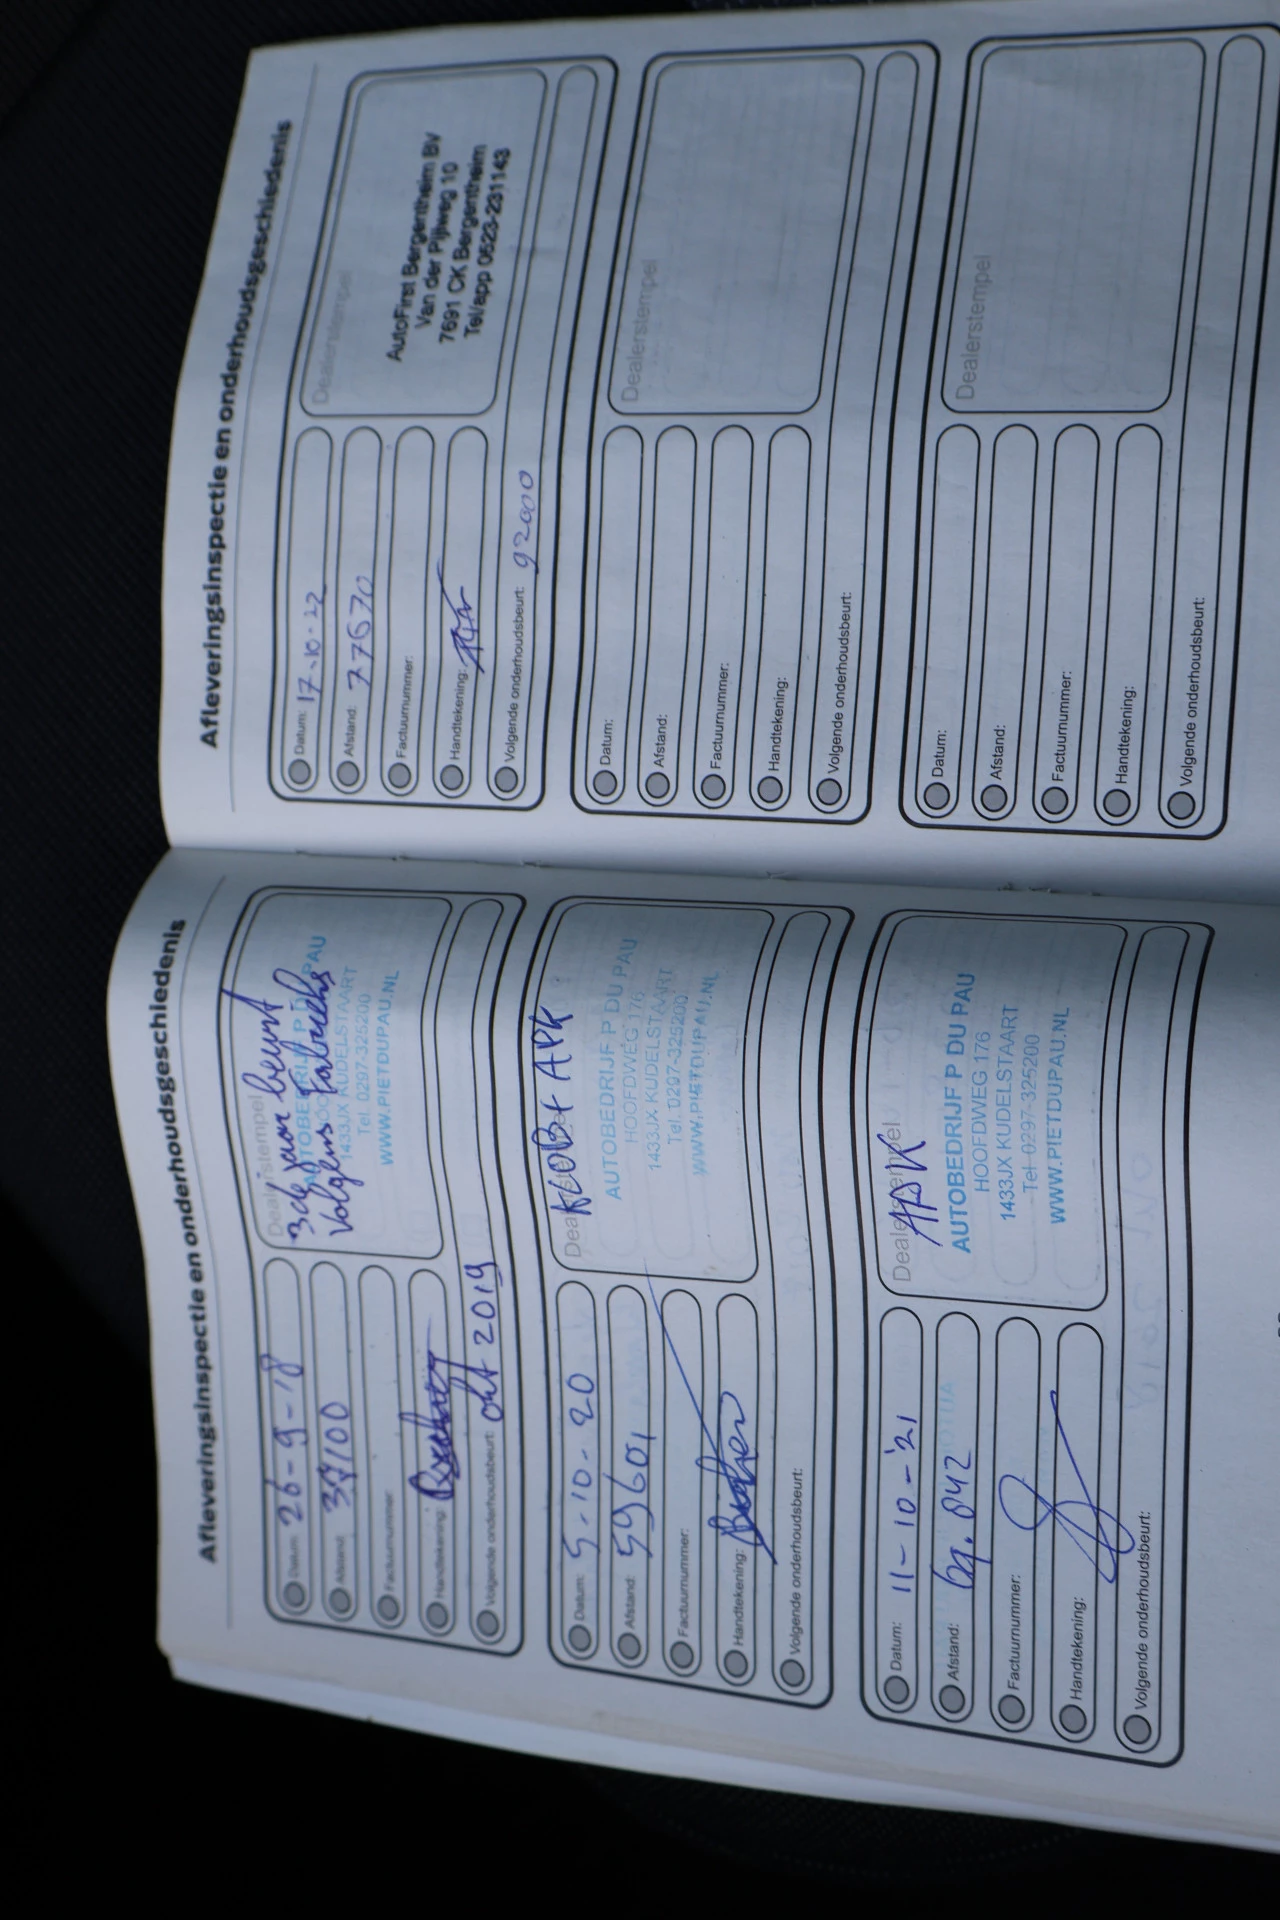 Afleveringsinspectie en onderhoudsgeschiedenis
Datum: 26-9-18
Afstand:
Factuurnummer:
Handtekening:
Volgende onderhoudsbeurt: okt 2019
Dealerstempel
3de jaar beurt
Volgens Fabrieks
AUTOBEDRIJF P DU PAU
1433JX KUDELSTAART
Tel. 0297-325200
WWW.PIETDUPAU.NL
Datum: 5-10-20
Afstand: 59601
Factuurnummer:
Handtekening:
Volgende onderhoudsbeurt:
+ APK
AUTOBEDRIJF P DU PAU
HOOFDWEG 176
1433JX KUDELSTAART
Tel. 0297-325200
WWW.PIETDUPAU.NL
Datum: 11-10-'21
Afstand:
Factuurnummer:
Handtekening:
Volgende onderhoudsbeurt:
Dealerstempel
APK
AUTOBEDRIJF P DU PAU
HOOFDWEG 176
1433JX KUDELSTAART
Tel. 0297-325200
WWW.PIETDUPAU.NL
Afleveringsinspectie en onderhoudsgeschiedenis
Datum: 17-10-22
Afstand: 77670
Factuurnummer:
Handtekening:
Volgende onderhoudsbeurt: 92000
Dealerstempel
AutoFirst Bergentheim BV
Van der Pijlweg 10
7691 CK Bergentheim
Tel/app 0523-231143
Datum:
Afstand:
Factuurnummer:
Handtekening:
Volgende onderhoudsbeurt:
Dealerstempel
Datum:
Afstand:
Factuurnummer:
Handtekening:
Volgende onderhoudsbeurt:
Dealerstempel